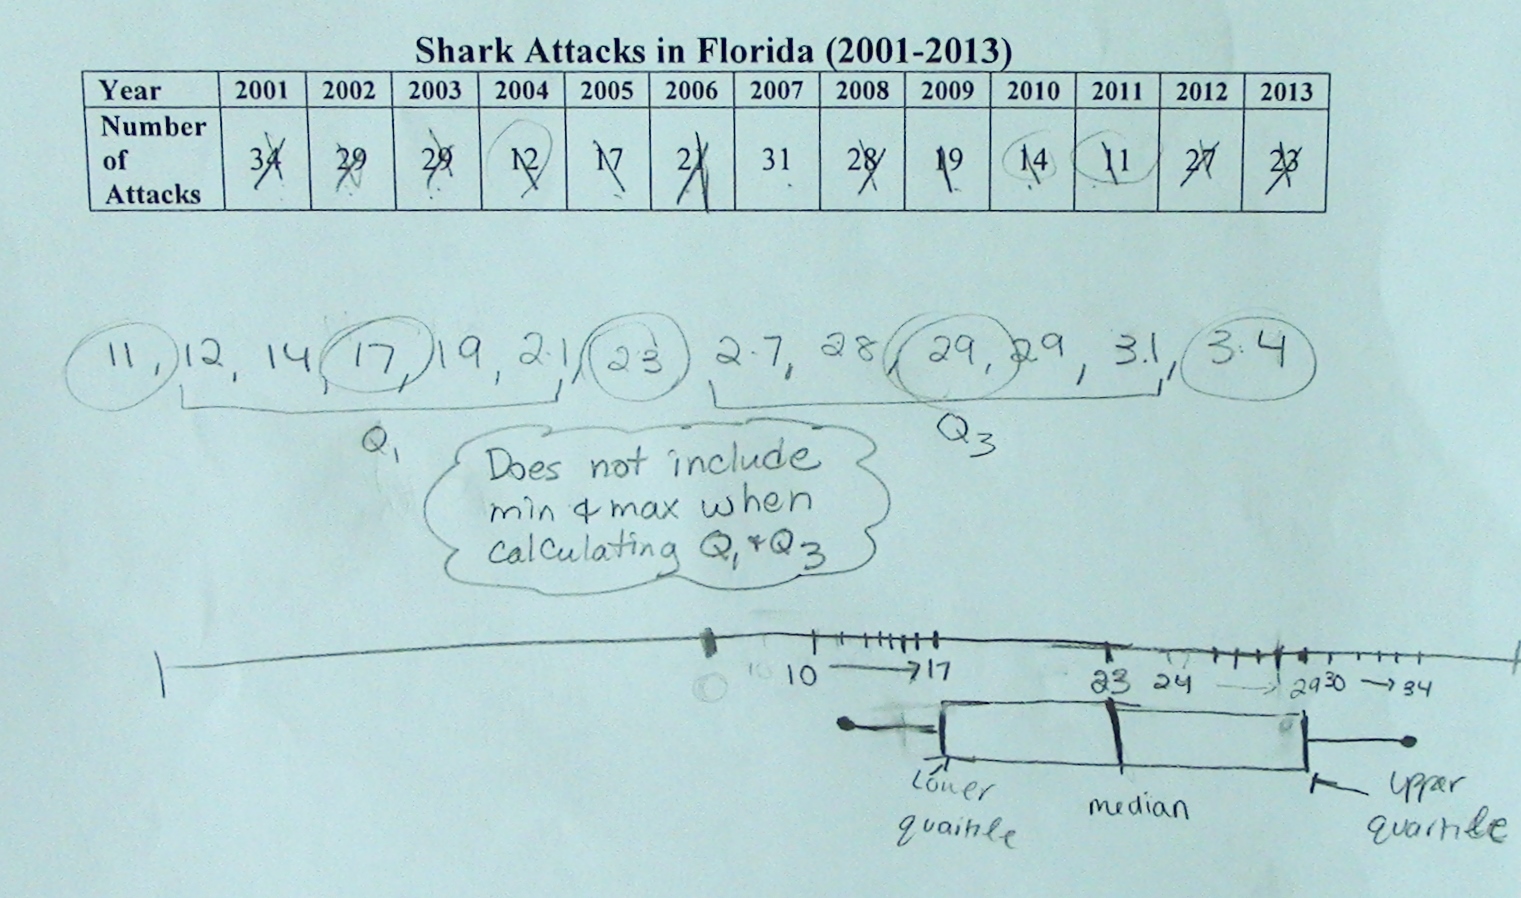 Shark Attacks in Florida (2001-2013)
Year 2001 2002 2003 2004 2005 2006 2007 2008 2009 2010 2011 2012 2013
Number of Attacks 34 29 29 12 17 21 31 28 19 14 11 27 23
11, 12, 14, 17, 19, 21, 23, 27, 28, 29, 29, 31, 34
Q1 Q3
Does not include
min & max when
calculating Q1 + Q3
0 10 10 → 17 23 24 → 29 30 → 34
Lower
quartile
median
upper
quartile